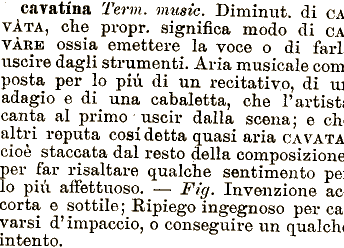 cavatína Term. music. Diminut. di CA
VÀTA, che propr. significa modo di CA
VÀRE ossia emettere la voce o di farl
uscire dagli strumenti. Aria musicale com
posta per lo piú di un recitativo, di u
adagio e di una cabaletta, che l'artist
canta al primo uscir dalla scena; e ch
altri reputa cosí detta quasi aria CAVATA
cioè staccata dal resto della composizione
per far risaltare qualche sentimento pe
lo piú affettuoso. — Fig. Invenzione ac
corta e sottile; Ripiego ingegnoso per ca
varsi d'impaccio, o conseguire un qualch
intento.